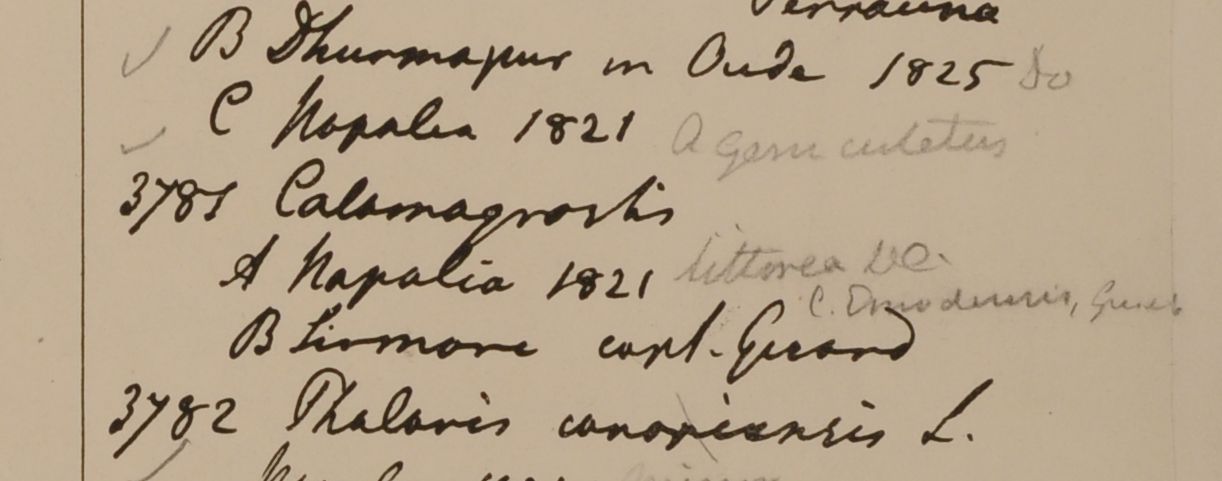 B Dhurmapur in Oude 1825 Do
C Napalia 1821 A geniculatus
3781 Calamagrostis
A Napalia 1821 littorea DC.
C. Emodensis, Griseb
B Sirmore capt. Gerard
3782 Phalaris canariensis L.